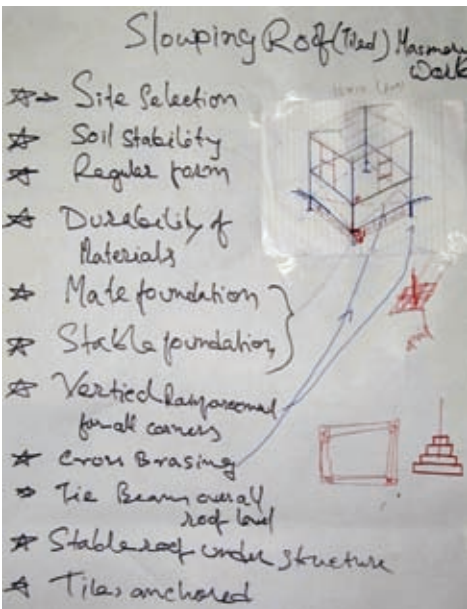 Slouping Roof (Tiled) Masmory
Work
Site Selection
Soil Stability
Regular form
Durability of
Materials
Mate foundation
Stable foundation
Vertied
for all corners
Cross Brasing
Tie Beam overall
roof level
Stable roof under structure
Tiles anchored